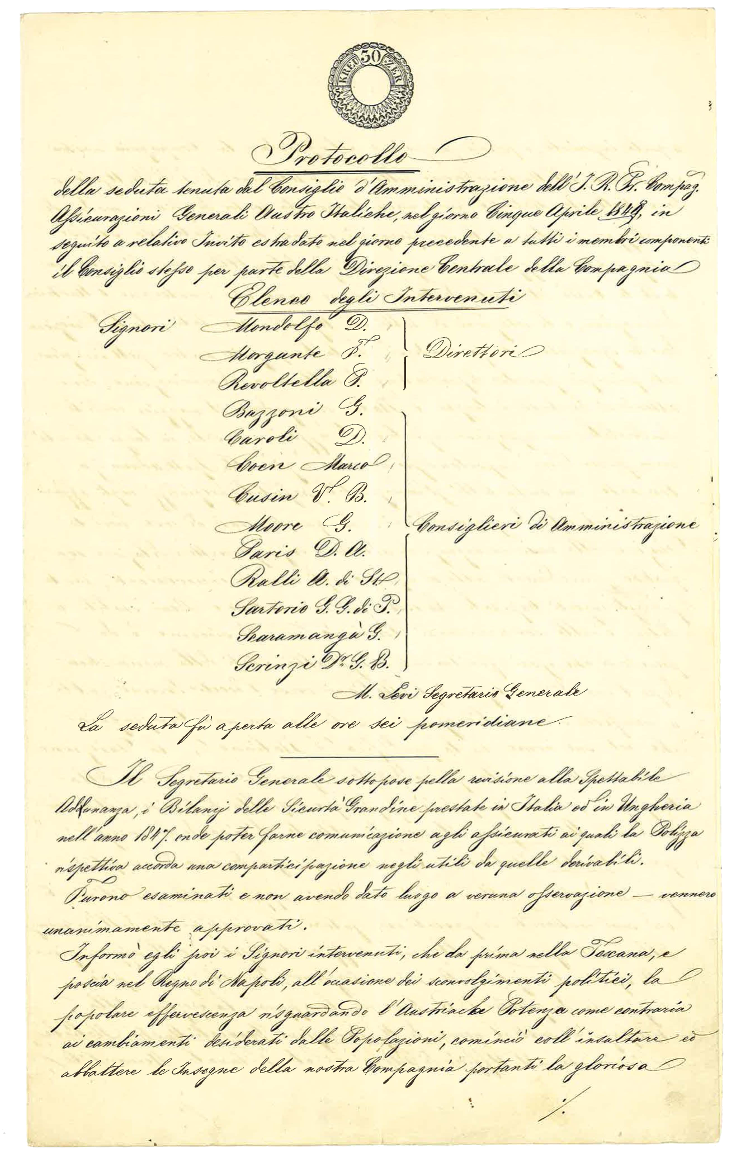 KREU 30 ZER
Protocollo
della seduta tenuta dal Consiglio d'Amministrazione dell' I. R. Pr. Compag.
Assicurazioni Generali Austro Italiche, nel giorno Cinque Aprile 1848, in
seguito a relativo Invito estradato nel giorno precedente a tutti i membri componenti
il Consiglio stesso per parte della Direzione Centrale della Compagnia
Elenco degli Intervenuti
Signori Mondolfo D.
Morgante F. Direttori
Revoltella P.
Bazzoni G.
Caroli D.
Coen Marco
Cusin V. B.
Moore G. Consiglieri di Amministrazione
Paris D. A.
Ralli A. di St.
Sartorio G. G. di P.
Scaramangà G.
Scrinzi Dr. G. B.
M. Levi Segretario Generale
La seduta fù aperta alle ore sei pomeridiane.
Il Segretario Generale sottopose pella revisione alla Spettabile
Addunanza, i Bilanj delle Sicurtà Grandine prestate in Italia ed in Ungheria
nell'anno 1847. onde poter farne comunicazione agli assicurati ai quali la Polizza
rispettiva accorda una compartecipazione negli utili da quelle derivabili.
Furono esaminati e non avendo dato luogo a veruna osservazione — vennero
unanimamente approvati.
Informò egli poi i Signori intervenuti, che da prima nella Toscana, e
poscia nel Regno di Napoli, all'occasione dei sconvolgimenti politici, la
popolare effervescenza risguardando l'Austriaca Potenza come contraria
ai cambiamenti desiderati dalle Popolazioni, cominciò coll'insultare ed
abbattere le Insegne della nostra Compagnia portanti la gloriosa
./.